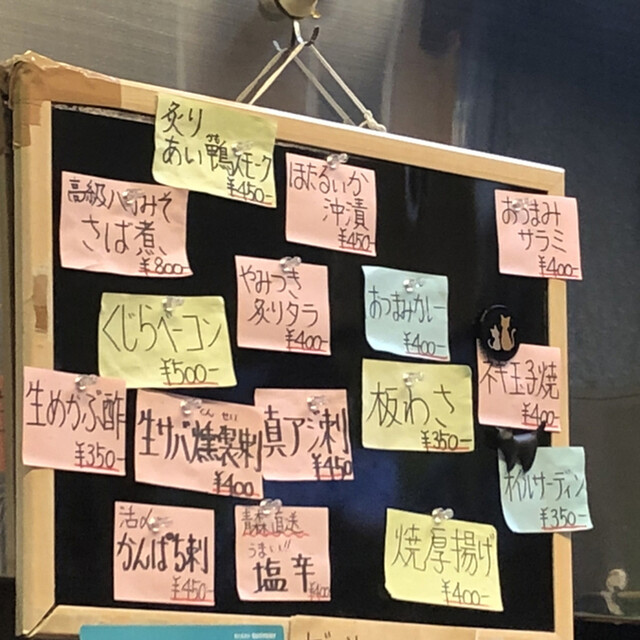 炙り
あい鴨スモーク
¥450-
ほたるいか
沖漬
¥450-
高級八丁みそ
さば煮
¥800-
おつまみ
サラミ
¥400-
やみつき
炙りタラ
¥400-
おつまみカレー
¥400-
くじらベーコン
¥500-
玉子焼
¥400-
生めかぶ酢
¥350-
くん せい
生サバ燻製刺
¥400
真アジ刺
¥450
板わさ
¥350-
オイルサーディン
¥350-
活〆
かんぱち刺
¥450-
青森直送
うまい!!
塩辛
¥400
焼厚揚げ
¥400-